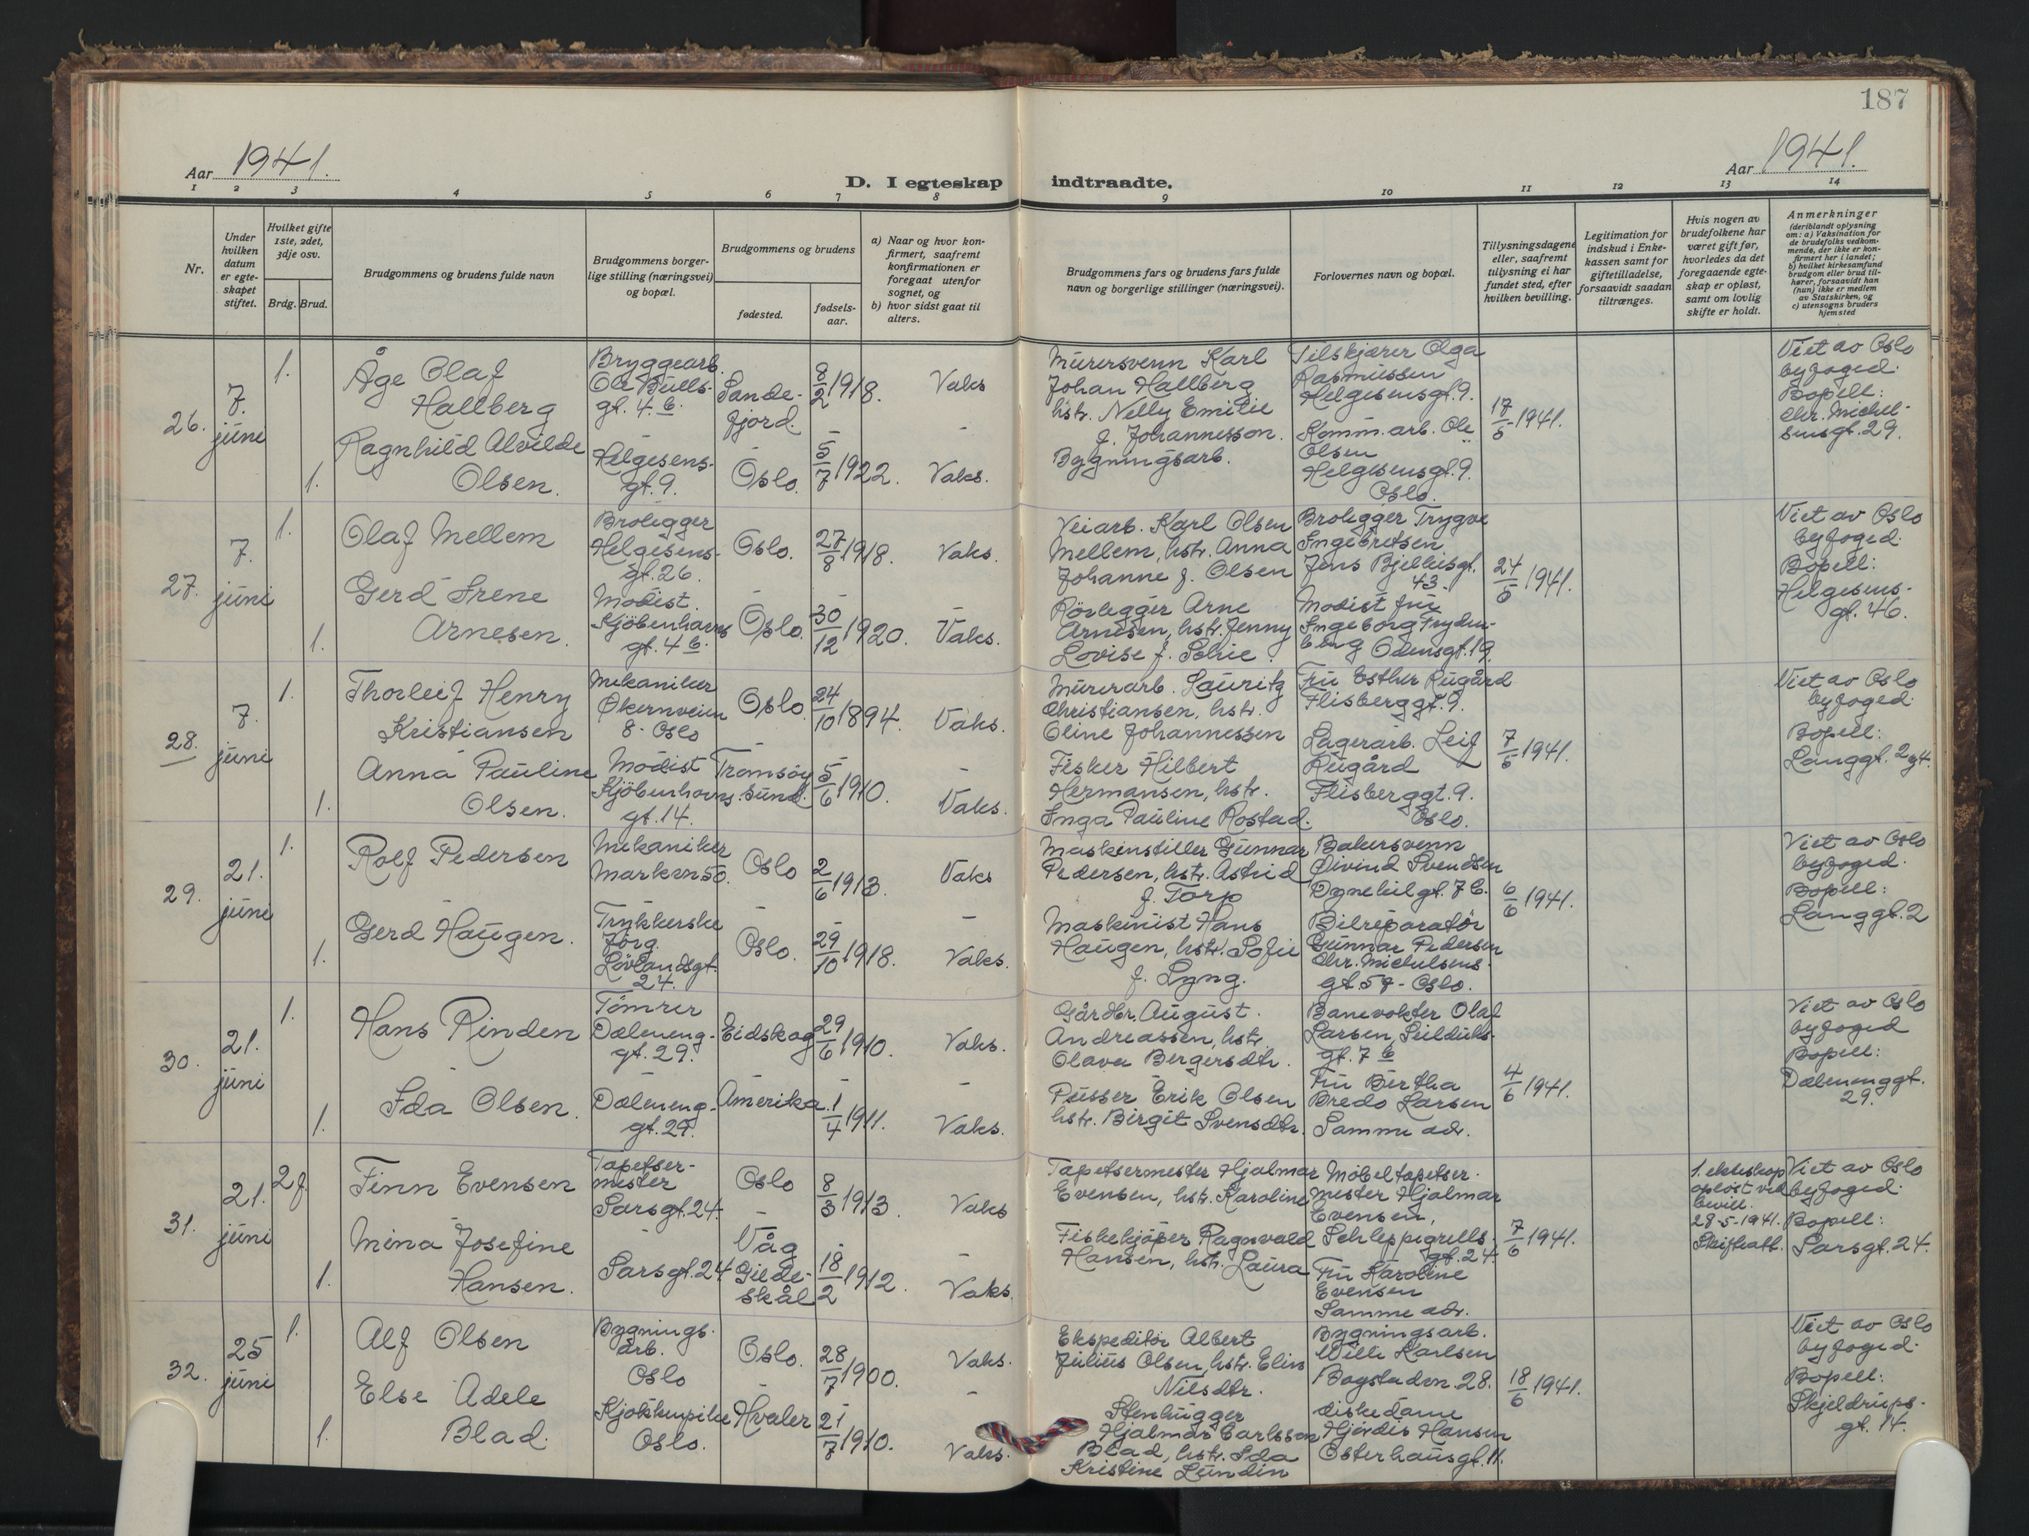 187
Aar 1941.
Aar 1941.
D. I egteskap indtraadte.
1 2 3 4 5 6 7 8 9 10 11 12 13 14
Nr.
Under
hvilken
datum
er egte-
skapet
stiftet.
Hvilket gifte
1ste, 2det,
3dje osv.
Brdg. Brud.
Brudgommens og brudens fulde navn
Brudgommens borger-
lige stilling (næringsvei)
og bopæl.
Brudgommens og brudens
fødested.
fødsels-
aar.
a) Naar og hvor kon-
firmert, saafremt
konfirmationen er
foregaat utenfor
sognet, og
b) hvor sidst gaat til
alters.
Brudgommens fars og brudens fars fulde
navn og borgerlige stillinger (næringsvei).
Forlovernes navn og bopæl.
Tillysningsdagene
eller, saafremt
tillysning ei har
fundet sted, efter
hvilken bevilling.
Legitimation for
indskud i Enke-
kassen samt for
giftetilladelse,
forsaavidt saadan
tiltrænges.
Hvis nogen av
brudefolkene har
været gift før,
hvorledes da det
foregaaende egte-
skap er opløst,
samt om lovlig
skifte er holdt.
Anmerkninger
(deriblandt oplysning
om: a) Vaksination for
de brudefolks vedkom-
mende, der ikke er kon-
firmert her i landet;
b) hvilket kirkesamfund
brudgom eller brud til-
hører, forsaavidt han
(hun) ikke er medlem
av Statskirken, og
c) utensogns bruders
hjemsted
26.
7.
juni
1.
Åge Olaf
Hallberg
Bryggearb.
Ole Bulls-
gt. 4 b.
Sande-
fjord.
8/2 1918.
Vaks
Murersvenn Karl
Johan Hallberg
hstr. Nelly Emilie
f. Johannesson.
Tilskjærer Olga
Rasmussen
Helgesensgt. 9.
17/5 1941.
Viet av Oslo
byfoged.
Bopell:
Chr. Michel-
sensgt. 29.
1.
Ragnhild Alvilde
Olsen.
Helgesens-
gt. 9.
Oslo.
5/7 1922.
Vaks.
Bygningsarb.
Komm. arb. Ole
Olsen
Helgesensgt. 9.
Oslo.
27.
7.
juni
1.
Olaf Mellem
Brolegger
Helgesens-
gt. 26.
Oslo.
27/8 1918.
Vaks.
Veiarb. Karl Olsen
Mellem, hstr. Anna
Johanne f. Olsen
Brolegger Trygve
Ingebretsen
Jens Bjelkesgt.
43.
24/5 1941.
Viet av Oslo
byfoged.
Bopell:
Helgesens-
gt. 46.
1.
Gerd Irene
Arnesen.
Modist.
Kjöbenhavns
gt. 4 b.
Oslo.
30/12 1920.
Vaks.
Rörlegger Arne
Arnesen, hstr. Jenny
Lovise f. Schie.
Modist fru
Ingeborg Fryden-
berg Odensgt. 19.
28.
7.
juni
1.
Thorleif Henry
Kristiansen
Mekaniker
Økernveien
8. Oslo
Oslo.
24/10 1894.
Vaks.
Murerarb. Lauritz
Christiansen, hstr.
Eline Johannessen
Fru Esther Rugård
Flisberggt. 9.
7/6 1941.
Viet av Oslo
byfoged.
Bopell:
Langgt. 24.
1.
Anna Pauline
Olsen.
Modist
Kjöbenhavns.
gt. 14.
Tromsöy-
sund.
5/6 1910.
Vaks.
Fisker Hilbert
Hermansen, hstr.
Inga Pauline Rostad.
Lagerarb. Leif
Rugård
Flisberggt. 9.
Oslo.
29.
21.
juni
1.
Rolf Pedersen
Mekaniker
Markvn 50.
Oslo
2/6 1913.
Vaks
Maskinstiller Gunnar
Pedersen, hstr. Astrid
f. Torp
Bakersvenn
Øivind Svendsen
Dynekilgt. 7 b.
6/6 1941.
Viet av Oslo
byfoged.
Bopell:
Langgt. 2
1.
Gerd Haugen.
Trykkerske
Jörg.
Lövlandsgt.
24.
Oslo.
29/10 1918.
Vaks.
Maskinist Hans
Haugen, hstr. Sofie
f. Lyng.
Bilreparatör
Gunnar Pedersen
Chr. Michelsens.
gt. 57 - Oslo.
30.
21.
juni
1.
Hans Rinden
Tömrer
Dæleneng-
gt. 29.
Eidskog
29/6 1910.
Vaks.
Gårdbr. August
Andreassen, hstr.
Olava Bergersdtr.
Banevokter Olaf
Larsen Seilduks-
gt. 7 b
4/6 1941.
Viet av Oslo
byfoged
Bopell:
Dælenenggt.
29.
1.
Ida Olsen.
Dæleneng-
gt. 29.
Amerika.
1/4 1911.
Vaks.
Pusser Erik Olsen
hstr. Birgit Svensdtr.
Fru Bertha
Bredo Larsen
Samme adr.
31.
21.
juni
2 f.
Finn Evensen
Tapetser-
mester
Sarsgt. 24.
Oslo
8/3 1913.
Vaks
Tapetsermester Hjalmar
Evensen, hstr. Karoline
Möbeltapetser.
mester Hjalmar
Evensen,
Schleppegrells
gt. 24.
7/6 1941.
1. ekteskap
oplöst ved
bevill.
28-5-1941.
Skifteatt.
Viet av Oslo
byfoged.
Bopell:
Sarsgt. 24.
1.
Mina Josefine
Hansen.
Sarsgt. 24
Våg
Gilde-
skål
18/2 1912.
Vaks.
Fiskekjöper Ragnvald
Hansen, hstr. Laura
Fru Karoline
Evensen
Samme adr.
32.
25
juni
1.
Alf Olsen
Bygnings.
arb.
Oslo
Oslo.
28/7 1900.
Vaks.
Ekspeditör Albert
Julius Olsen, hstr. Elise
Nilsdtr.
Bygningsarb.
Wille Karlsen
Bogstadvn 28.
18/6 1941.
Viet av Oslo
byfoged.
Bopell:
Skjeldrups-
gt. 14.
1.
Else Adele
Blad.
Kjökkenpike
Oslo.
Hvaler
21/7 1910.
Vaks.
Stenhugger
Hjalmar Carlsson
Blad, hstr. Ida
Kristine Lundin
diskedame
Hjördis Hansen
Osterhausgt. 11.